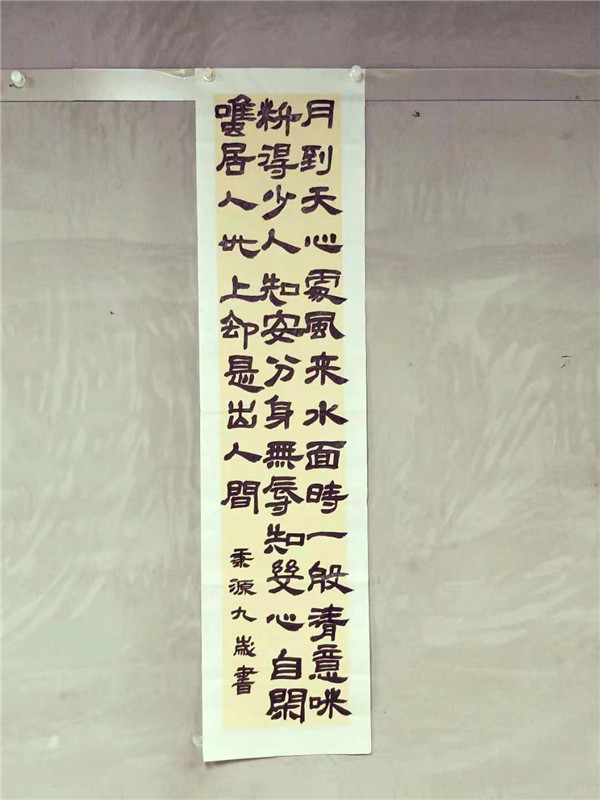 月到天心處風来水面時一般清意味
料得少人知安分身無辱知幾心自閑
雖居人世上却是出人間
秉源九歲書